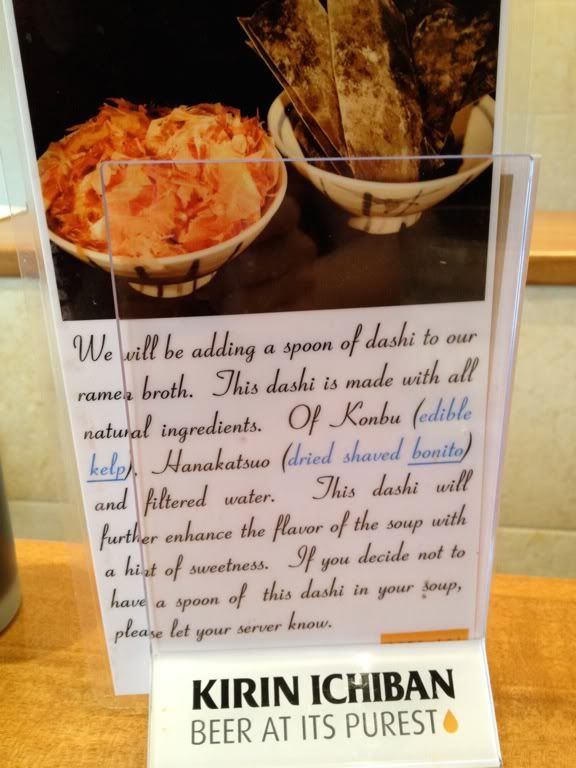 We will be adding a spoon of dashi to our
ramen broth. This dashi is made with all
natural ingredients. Of Konbu (edible
kelp), Hanakatsuo (dried shaved bonito)
and filtered water. This dashi will
further enhance the flavor of the soup with
a hint of sweetness. If you decide not to
have a spoon of this dashi in your soup,
please let your server know.
KIRIN ICHIBAN
BEER AT ITS PUREST